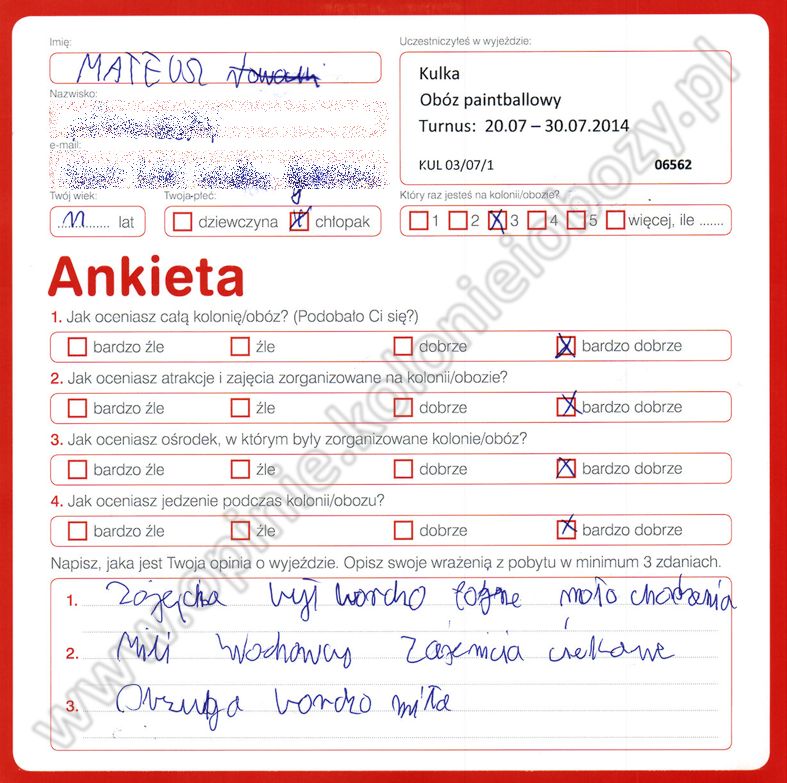 Imię:
MATEUSZ
Uczestniczyłeś w wyjeździe:
Kulka
Obóz paintballowy
Turnus: 20.07 – 30.07.2014
KUL 03/07/1 06562
Nazwisko:
e-mail:
Twój wiek: Twoja płeć: Który raz jesteś na kolonii/obozie?
11 lat dziewczyna chłopak 1 2 3 4 5 więcej, ile .......
Ankieta
1. Jak oceniasz całą kolonię/obóz? (Podobało Ci się?)
bardzo źle źle dobrze bardzo dobrze
2. Jak oceniasz atrakcje i zajęcia zorganizowane na kolonii/obozie?
bardzo źle źle dobrze bardzo dobrze
3. Jak oceniasz ośrodek, w którym były zorganizowane kolonie/obóz?
bardzo źle źle dobrze bardzo dobrze
4. Jak oceniasz jedzenie podczas kolonii/obozu?
bardzo źle źle dobrze bardzo dobrze
Napisz, jaka jest Twoja opinia o wyjeździe. Opisz swoje wrażenią z pobytu w minimum 3 zdaniach.
1. był bardzo mało chodzenia
2. Mili ciekawe
3. Obsuga bardzo miła
www.opinie.kolonieiobozy.pl